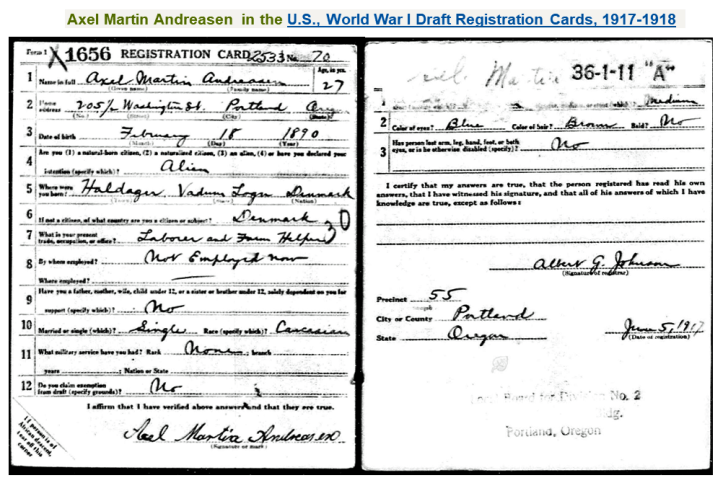 Axel Martin Andreasen in the U.S., World War I Draft Registration Cards, 1917-1918
Form 1 1656 REGISTRATION CARD 2533 No. 70
1 Name in full Axel Martin Andreasen Age, in yrs. 27
(Given name) (Family name)
2 Home address 205½ Washington St. Portland Oreg
(No.) (Street) (City) (State)
3 Date of birth February 18 1890
(Month) (Day) (Year)
Are you (1) a natural-born citizen, (2) a naturalized citizen, (3) an alien, (4) or have you declared your
4 intention (specify which)? Alien
5 Where were you born? Haldager, Vadum Sogn Denmark
(Nation)
6 If not a citizen, of what country are you a citizen or subject? Denmark
7 What is your present trade, occupation, or office? Laborer and Farm Helper
8 By whom employed? Not Employed now
Where employed?
9 Have you a father, mother, wife, child under 12, or a sister or brother under 12, solely dependent on you for
support (specify which)? No
10 Married or single (which)? Single Race (specify which)? Caucasian
11 What military service have you had? Rank None ; branch
years ; Nation or State
12 Do you claim exemption from draft (specify grounds)? No
I affirm that I have verified above answers and that they are true.
Axel Martin Andreasen
(Signature or mark)
If person is of
African descent,
tear off this
corner
Martin 36-1-11 "A"
1 Medium
2 Color of eyes? Blue Color of hair? Brown Bald? No
3 Has person lost arm, leg, hand, foot, or both
eyes, or is he otherwise disabled (specify)? No
I certify that my answers are true, that the person registered has read his own
answers, that I have witnessed his signature, and that all of his answers of which I have
knowledge are true, except as follows:
Albert G. Johnson
(Signature of registrar)
Precinct 55
City or County Portland
State Oregon
June 5, 1917
(Date of registration)
Local Board for Division No. 2
Bldg.
Portland, Oregon